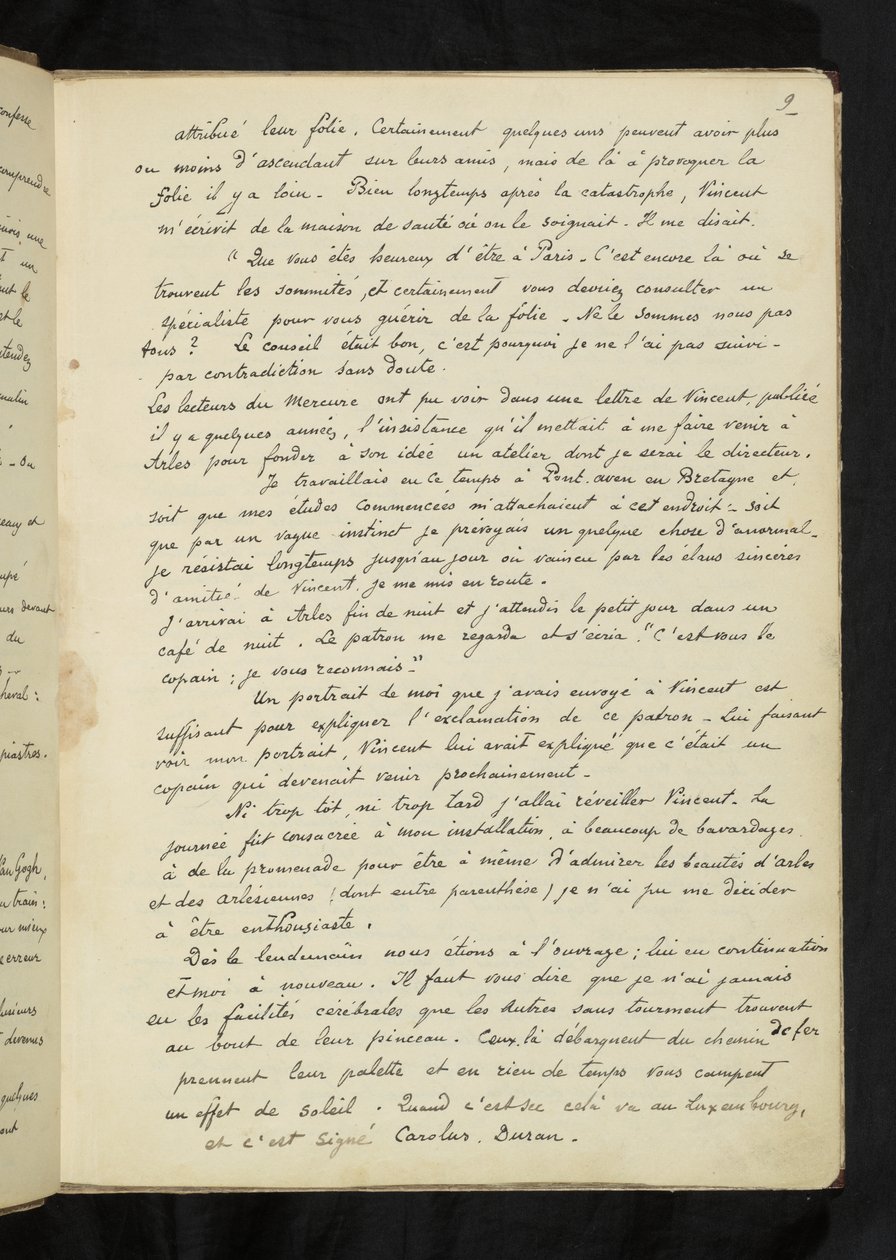 9
attribué leur folie. Certainement quelques uns peuvent avoir plus
ou moins d'ascendant sur leurs amis, mais de là à provoquer la
folie il y a loin - Bien longtemps après la catastrophe, Vincent
m'écrivit de la maison de santé où on le soignait - Il me disait.
" Que vous êtes heureux d'être à Paris - C'est encore là où se
trouvent les sommités, et certainement vous devriez consulter un
spécialiste pour vous guérir de la folie - Ne le sommes nous pas
tous ? Le conseil était bon, c'est pourquoi je ne l'ai pas suivi -
par contradiction sans doute.
Les lecteurs du Mercure ont pu voir dans une lettre de Vincent, publiée
il y a quelques années, l'insistance qu'il mettait à me faire venir à
Arles pour fonder à son idée un atelier dont je serai le directeur.
Je travaillais en ce temps à Pont-aven en Bretagne et
soit que mes études commencées m'attachaient à cet endroit - soit
que par un vague instinct je prévoyais un quelque chose d'anormal -
je résistai longtemps jusqu'au jour où vaincu par les élans sincères
d'amitié de Vincent, je me mis en route.
J'arrivai à Arles fin de nuit et j'attendis le petit jour dans un
café de nuit. Le patron me regarda et s'écria : " C'est vous le
copain ; je vous reconnais - "
Un portrait de moi que j'avais envoyé à Vincent est
suffisant pour expliquer l'exclamation de ce patron - Lui faisant
voir mon portrait, Vincent lui avait expliqué que c'était un
copain qui devenait venir prochainement -
Ni trop tôt, ni trop tard j'allai réveiller Vincent. La
journée fût consacrée à mon installation, à beaucoup de bavardages
à de la promenade pour être à même d'admirer les beautés d'arles
et des arlésiennes (dont entre parenthèse) je n'ai pu me décider
à être enthousiaste.
Dès le lendemain nous étions à l'ouvrage ; lui en continuation
et moi à nouveau. Il faut vous dire que je n'ai jamais
eu les facilités cérébrales que les Autres sans tourment trouvent
au bout de leur pinceau. Ceux-là débarquent du chemin de fer
prennent leur palette et en rien de temps vous campent
un effet de soleil. Quand c'est sec celà va au Luxembourg,
et c'est signé Carolus. Duran.
confesse
comprendre
une
un
et le
attendez
matin
du
et
devant
du
cheval :
piastres.
Van Gogh,
train :
mieux
erreur
plusieurs
devenus
quelques